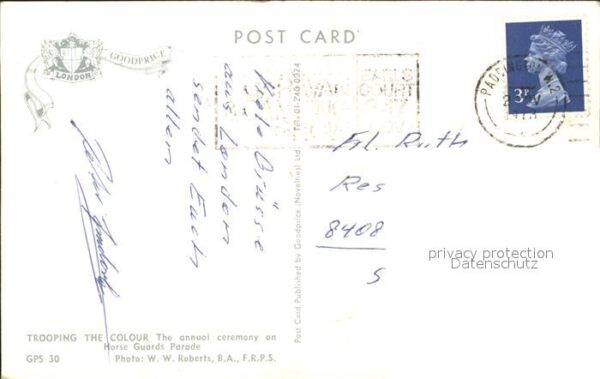 POST CARD
GOODPRICE
LONDON
PADDINGTON W.2
3P
EARLS
COURT
Viele Grüsse
aus London
sendet Euch
allen
Frl. Ruth
Res
8408
S
privacy protection
Datenschutz
Post Card Published by Goodprice (Novelties) Ltd. Tel: 01-740 0924
TROOPING THE COLOUR The annual ceremony on
Horse Guards Parade
GPS 30 Photo: W. W. Roberts, B.A., F.R.P.S.